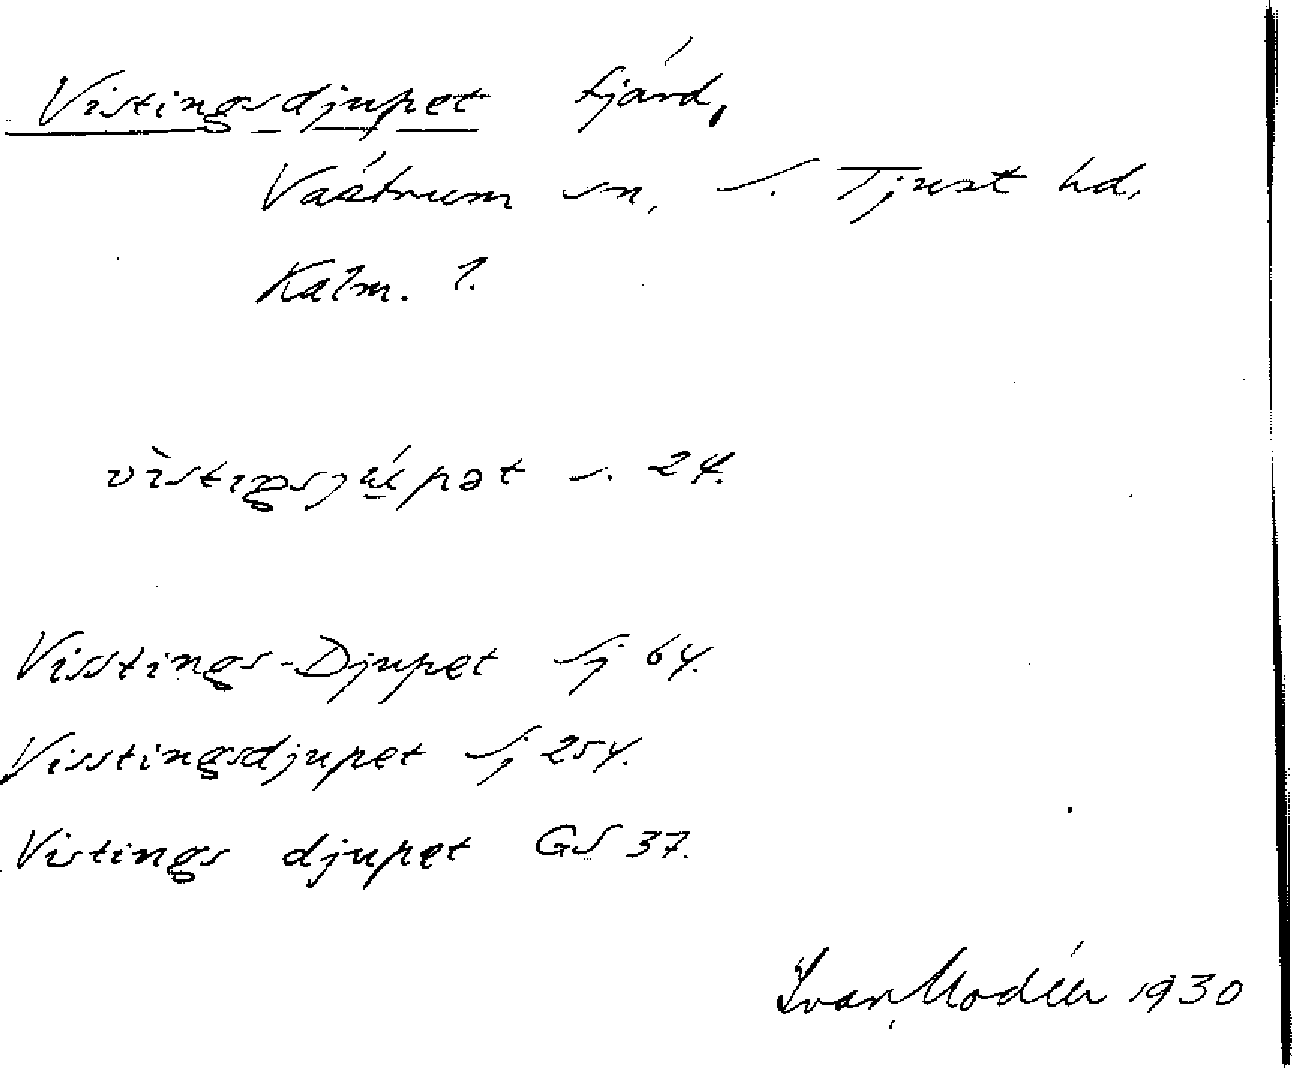 Vistingsdjupet fjärd,
Västrum sn, S. Tjust hd,
Kalm. l.
s. 24.
Visstings-Djupet Sj 64.
Visstingsdjupet Sj 254.
Vistings djupet GS 37.
Ivar Modéer 1930